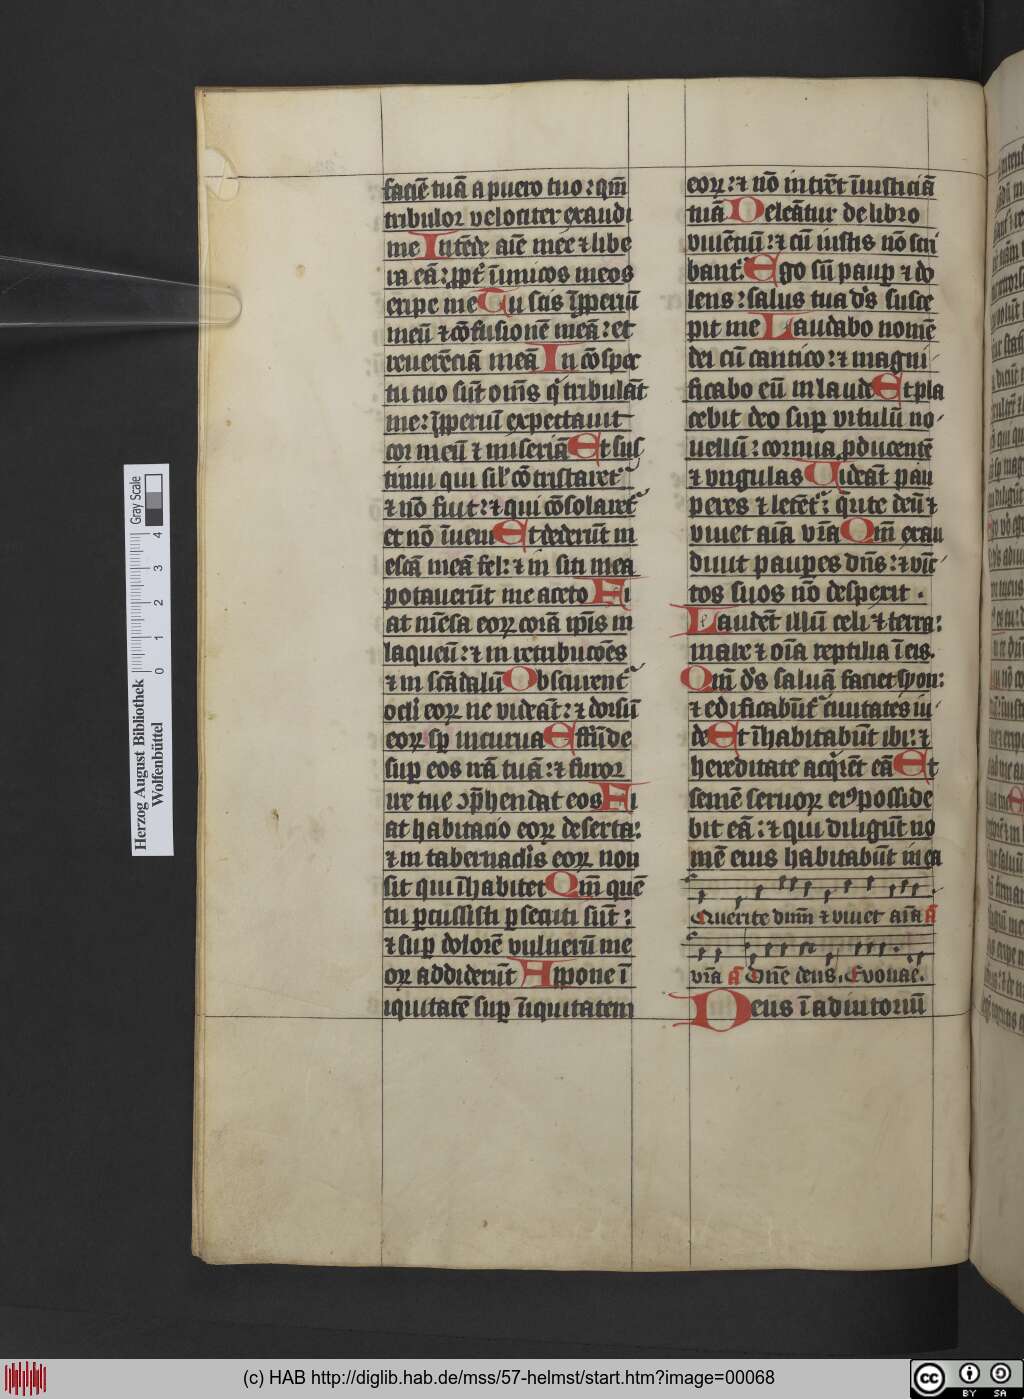 faciē tuā a puero tuo : qm̄
tribulor velociter exaudi
me Intēde aīe mee ⁊ libe
ra eā : ꝓpt' īimicos meos
eripe me Tu scis īpꝓperiū
meū ⁊ cōfusionē meā : et
reuerēciā meā In cōspec
tu tuo sūt om̄s q' tribulāt
me : īpꝓperiū expectauit
cor meū ⁊ miseriā Et sus
tinui qui sil' cōtristaret'
⁊ nō fuit : ⁊ qui cōsolaret'
et nō īueni Et dederūt in
escā meā fel : ⁊ in siti mea
potauerūt me aceto Fi
at mēsa eoꝝ corā ip̄is in
laqueū : ⁊ in retribucōes
⁊ in scādalū Obscurent'
ocl'i eoꝝ ne videāt : ⁊ dorsū
eoꝝ sp̄ incurua Effūde
suꝑ eos irā tuā : ⁊ furor
ire tue ꝯp̄hendat eos Fi
at habitacio eoꝝ deserta :
⁊ in tabernacl'is eoꝝ non
sit qui īhabitet Qm̄ quē
tu ꝑcussisti ꝑsecuti sūt :
⁊ suꝑ dolorē vulnerū me
oꝝ addiderūt Appone ī
iquitatē suꝑ īiquitatem
eoꝝ : ⁊ nō intrēt ī iusticiā
tuā Deleātur de libro
viuēciū : ⁊ cū iustis nō scri
bant' Ego sū pauꝑ ⁊ do
lens : salus tua d's susce
pit me Laudabo nomē
dei cū cantico : ⁊ magni
ficabo eū in laude Et pla
cebit deo suꝑ vitulū no
uellū : cornua ꝓducentē
⁊ vngulas Uideāt pau
peres ⁊ letēt' : q̄rite deū ⁊
viuet aīa vr̄a Qm̄ exau
diuit pauꝑes dn̄s : ⁊ vīc
tos suos nō despexit .
Laudēt illū celi ⁊ terra :
mare ⁊ oīa reptilia ī eis.
Qm̄ d's saluā faciet syon :
⁊ edificabūt' ciuitates iu
de Et īhabitabūt ibi : ⁊
hereditate acq'rēt eā Et
semē seruoꝝ ei9 posside
bit eā : ⁊ qui diligūt no
mē eius habitabūt in ea
Querite dn̄m ⁊ viuet aīa a͞
vr̄a a͞ Dn̄e deus. Evovae.
Deus ī adiutoriū
Herzog August Bibliothek
Wolfenbüttel
Gray Scale
0 1 2 3 4
(c) HAB http://diglib.hab.de/mss/57-helmst/start.htm?image=00068
cc BY SA